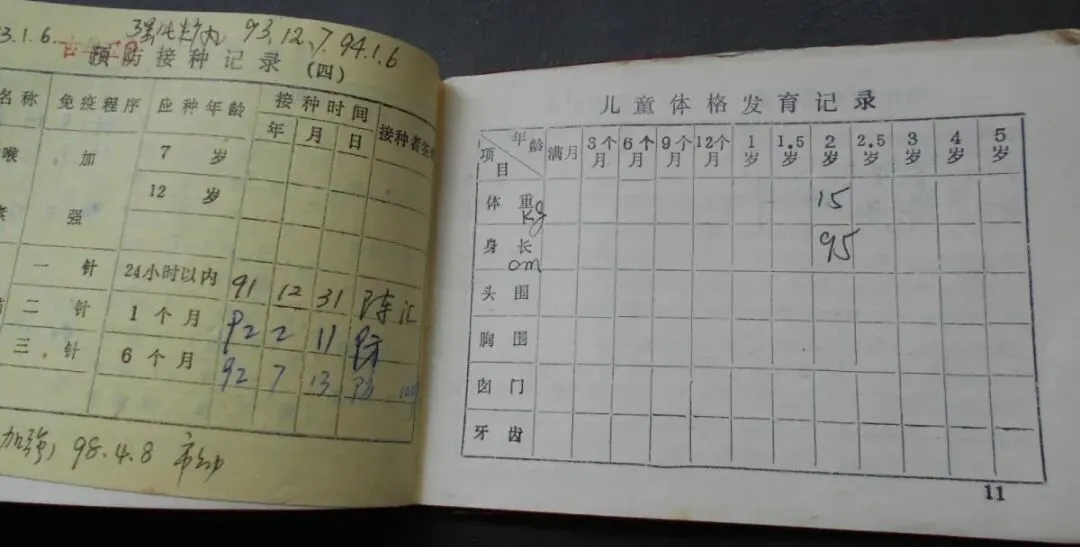 3.1.6.
强化炸丸 93.12.7. 94.1.6
预防接种记录（四）
名称 免疫程序 应种年龄 接种时间 接种者签
年 月 日
喉 加 7 岁
12 岁
强
一 针 24小时以内 91 12 31 陈汇
二 针 1 个 月 92 2 11
三 针 6 个 月 92 7 13
加强 98.4.8 市幼
儿童体格发育记录
年龄 项目 满月 3个月 6个月 9个月 12个月 1岁 1.5岁 2岁 2.5岁 3岁 4岁 5岁
体 重 Kg 15
身 长 cm 95
头 围
胸 围
囟 门
牙 齿
11